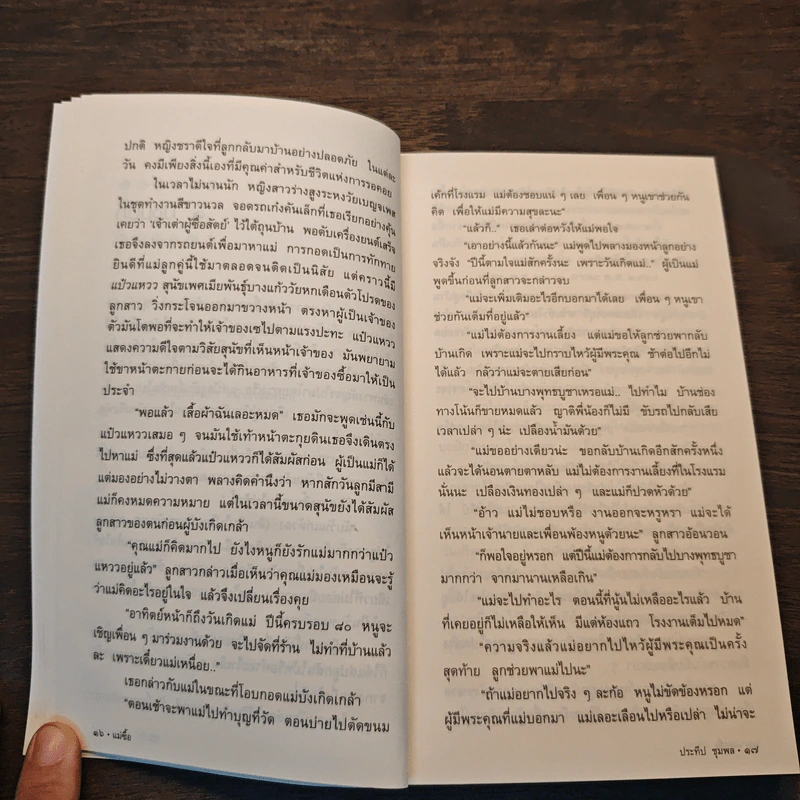 ปกติ หญิงชราดีใจที่ลูกกลับมาบ้านอย่างปลอดภัย ในแต่ละ
วัน คงมีเพียงสิ่งนี้เองที่มีคุณค่าสำหรับชีวิตแห่งการรอคอย
ในเวลาไม่นานนัก หญิงสาวร่างสูงระหงวัยเบญจเพส
ในชุดทำงานสีขาวนวล จอดรถเก๋งคันเล็กที่เธอเรียกอย่างคุ้น
เคยว่า 'เจ้าเต่าผู้ซื่อสัตย์' ไว้ใต้ถุนบ้าน พอดับเครื่องยนต์เสร็จ
เธอจึงลงจากรถยนต์เพื่อมาหาแม่ การกอดเป็นการทักทาย
ยินดีที่แม่ลูกคู่นี้ใช้มาตลอดจนติดเป็นนิสัย แต่คราวนี้มี
แป๋วแหวว สุนัขเพศเมียพันธุ์บางแก้ววัยหกเดือนตัวโปรดของ
ลูกสาว วิ่งกระโจนออกมาขวางหน้า ตรงหาผู้เป็นเจ้าของ
ตัวมันโตพอที่จะทำให้เจ้าของเซไปตามแรงปะทะ แป๋วแหวว
แสดงความดีใจตามวิสัยสุนัขที่เห็นหน้าเจ้าของ มันพยายาม
ใช้ขาหน้าตะกายก่อนจะได้กินอาหารที่เจ้าของซื้อมาให้เป็น
ประจำ
"พอแล้ว เสื้อผ้าฉันเลอะหมด" เธอมักจะพูดเช่นนี้กับ
แป๋วแหววเสมอ ๆ จนมันใช้เท้าหน้าตะกุยดินเธอจึงเดินตรง
ไปหาแม่ ซึ่งที่สุดแล้วแป๋วแหววก็ได้สัมผัสก่อน ผู้เป็นแม่ก็ได้
แต่มองอย่างไม่วางตา พลางคิดคำนึงว่า หากสักวันลูกมีสามี
แม่ก็คงหมดความหมาย แต่ในเวลานี้ขนาดสุนัขยังได้สัมผัส
ลูกสาวของตนก่อนผู้บังเกิดเกล้า
"คุณแม่ก็คิดมากไป ยังไงหนูก็ยังรักแม่มากกว่าแป๋ว
แหววอยู่แล้ว" ลูกสาวกล่าวเมื่อเห็นว่าคุณแม่มองเหมือนจะรู้
ว่าแม่คิดอะไรอยู่ในใจ แล้วจึงเปลี่ยนเรื่องคุย
"อาทิตย์หน้าก็ถึงวันเกิดแม่ ปีนี้ครบรอบ ๘๐ หนูจะ
เชิญเพื่อน ๆ มาร่วมงานด้วย จะไปจัดที่ร้าน ไม่ทำที่บ้านแล้ว
ละ เพราะเดี๋ยวแม่เหนื่อย.."
เธอกล่าวกับแม่ในขณะที่โอบกอดแม่บังเกิดเกล้า
"ตอนเช้าจะพาแม่ไปทำบุญที่วัด ตอนบ่ายไปตัดขนม
๑๖ • แม่ซื้อ
เค้กที่โรงแรม แม่ต้องชอบแน่ ๆ เลย เพื่อน ๆ หนูเขาช่วยกัน
คิด เพื่อให้แม่มีความสุขละนะ"
"แล้วก็.." เธอเล่าต่อหวังให้แม่พอใจ
"เอาอย่างนี้แล้วกันนะ" แม่พูดไปพลางมองหน้าลูกอย่าง
จริงจัง "ปีนี้ตามใจแม่สักครั้งนะ เพราะวันเกิดแม่.." ผู้เป็นแม่
พูดขึ้นก่อนที่ลูกสาวจะกล่าวจบ
"แม่จะเพิ่มเติมอะไรอีกบอกมาได้เลย เพื่อน ๆ หนูเขา
ช่วยกันเต็มที่อยู่แล้ว"
"แม่ไม่ต้องการงานเลี้ยง แต่แม่ขอให้ลูกช่วยพากลับ
บ้านเกิด เพราะแม่จะไปกราบไหว้ผู้มีพระคุณ ช้าต่อไปอีกไม่
ได้แล้ว กลัวว่าแม่จะตายเสียก่อน"
"จะไปบ้านบางพุทธบูชาเหรอแม่.. ไปทำไม บ้านช่อง
ทางโน้นก็ขายหมดแล้ว ญาติพี่น้องก็ไม่มี ขับรถไปกลับเสีย
เวลาเปล่า ๆ น่ะ เปลืองน้ำมันด้วย"
"แม่ขออย่างเดียวน่ะ ขอกลับบ้านเกิดอีกสักครั้งหนึ่ง
แล้วจะได้นอนตายตาหลับ แม่ไม่ต้องการงานเลี้ยงที่ในโรงแรม
นั่นนะ เปลืองเงินทองเปล่า ๆ และแม่ก็ปวดหัวด้วย"
"อ้าว แม่ไม่ชอบหรือ งานออกจะหรูหรา แม่จะได้
เห็นหน้าเจ้านายและเพื่อนพ้องหนูด้วยนะ" ลูกสาวอ้อนวอน
"ก็พอใจอยู่หรอก แต่ปีนี้แม่ต้องการกลับไปบางพุทธบูชา
มากกว่า จากมานานเหลือเกิน"
"แม่จะไปทำอะไร ตอนนี้ที่นู้นไม่เหลืออะไรแล้ว บ้าน
ที่เคยอยู่ก็ไม่เหลือให้เห็น มีแต่ห้องแถว โรงงานเต็มไปหมด"
"ความจริงแล้วแม่อยากไปไหว้ผู้มีพระคุณเป็นครั้ง
สุดท้าย ลูกช่วยพาแม่ไปนะ"
"ถ้าแม่อยากไปจริง ๆ ละก้อ หนูไม่ขัดข้องหรอก แต่
ผู้มีพระคุณที่แม่บอกมา แม่เลอะเลือนไปหรือเปล่า ไม่น่าจะ
ประทีป ชุมพล • ๑๗